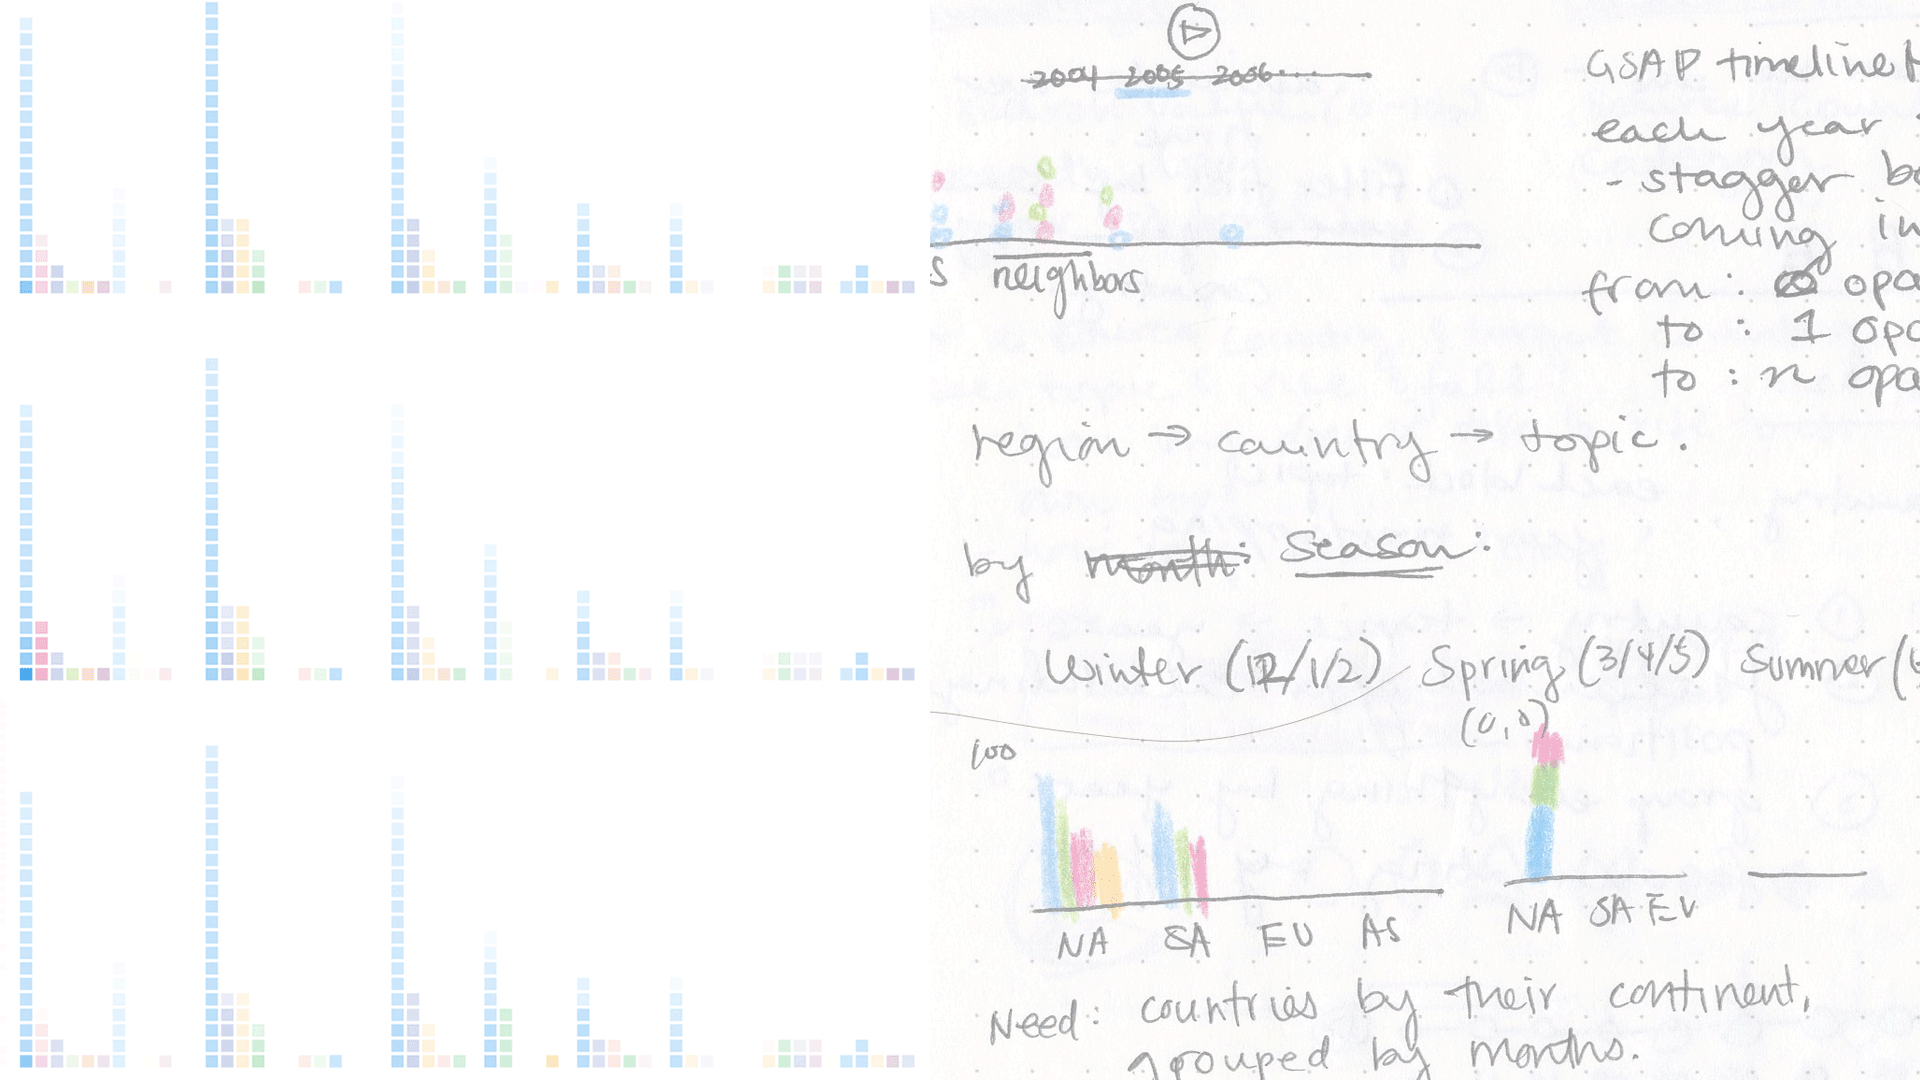 2004 2005 2006....
s
neighbors
GSAP timeline
each year :
- stagger
coming in
from : 0
to : 1
to : n
region → country → topic.
by month: Season:
Winter (12/1/2) Spring (3/4/5) Summer
100
(0,0)
NA SA EU AS
NA SA EU
Need: countries by their continent,
grouped by months.